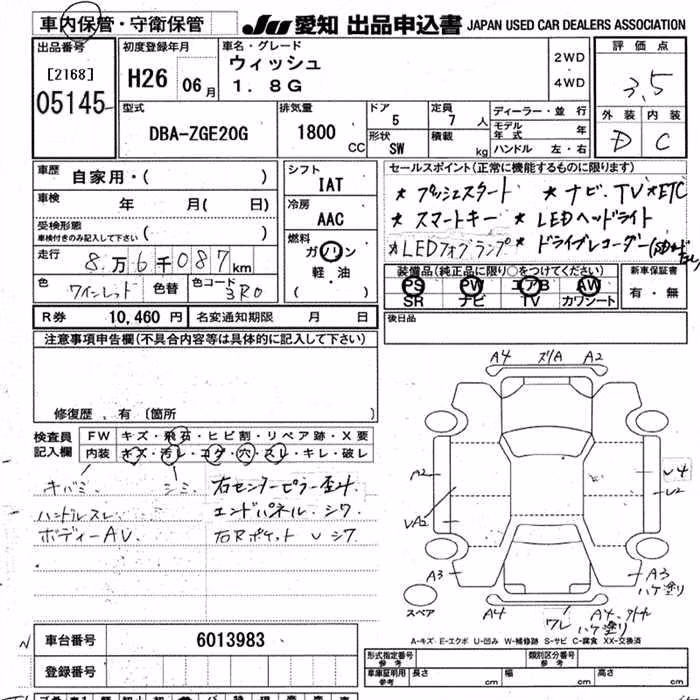 車内保管・守衛保管
JU 愛知 出品申込書 JAPAN USED CAR DEALERS ASSOCIATION
出品番号
[2168]
05145
初度登録年月
H26 06月
車名・グレード
ウィッシュ
1.8G
2WD
・
4WD
評価点
3.5
外装 内装
D C
型式
DBA-ZGE20G
排気量
1800 CC
ドア
5
形状
SW
定員
7 人
積載
kg
ディーラー・並行
モデル年式 年
ハンドル 左・右
車歴 自家用・( )
車検 年 月( 日)
受検形態
車検付きのみ記入して下さい ( )
走行 8万6千087km
色 ワインレッド 色替 色コード 3R0
シフト
IAT
冷房
AAC
燃料
ガソリン
軽・油
( )
セールスポイント(正常に機能するものに限ります)
* プッシュスタート * ナビ.TV *ETC
* スマートキー * LEDヘッドライト
*LEDフォグランプ * ドライブレコーダー
装備品(純正品に限り○をつけてください)
PS PW エアB AW
SR ナビ TV カワシート
新車保証書
有・無
R券 10,460円 名変通知期限 月 日
後日品
注意事項申告欄(不具合内容等は具体的に記入して下さい)
修復歴.有〔箇所
検査員記入欄
FW キズ・飛石・ヒビ割・リペア跡・X要
内装 キズ・汚レ・コゲ・穴・スレ・キレ・破レ
キバミ. シミ. 右センターピラー歪ミ.
ハンドルスレ エンドパネル.シワ
ボディーAU. 右Rポケット U シワ
A4 ズリA A2
A2
UA2
U4
U2
A3
A3
ハケ塗り
スペア
A4
ワレ
A4.
ハケ塗り
A-キズ E-エクボ U-凹み W-補修跡 S-サビ C-腐食 XX-交換済
車台番号 6013983
登録番号
形式指定番号
参考
類別区分番号
参考
車庫証明用
参考
長さ cm 幅 cm 高さ cm